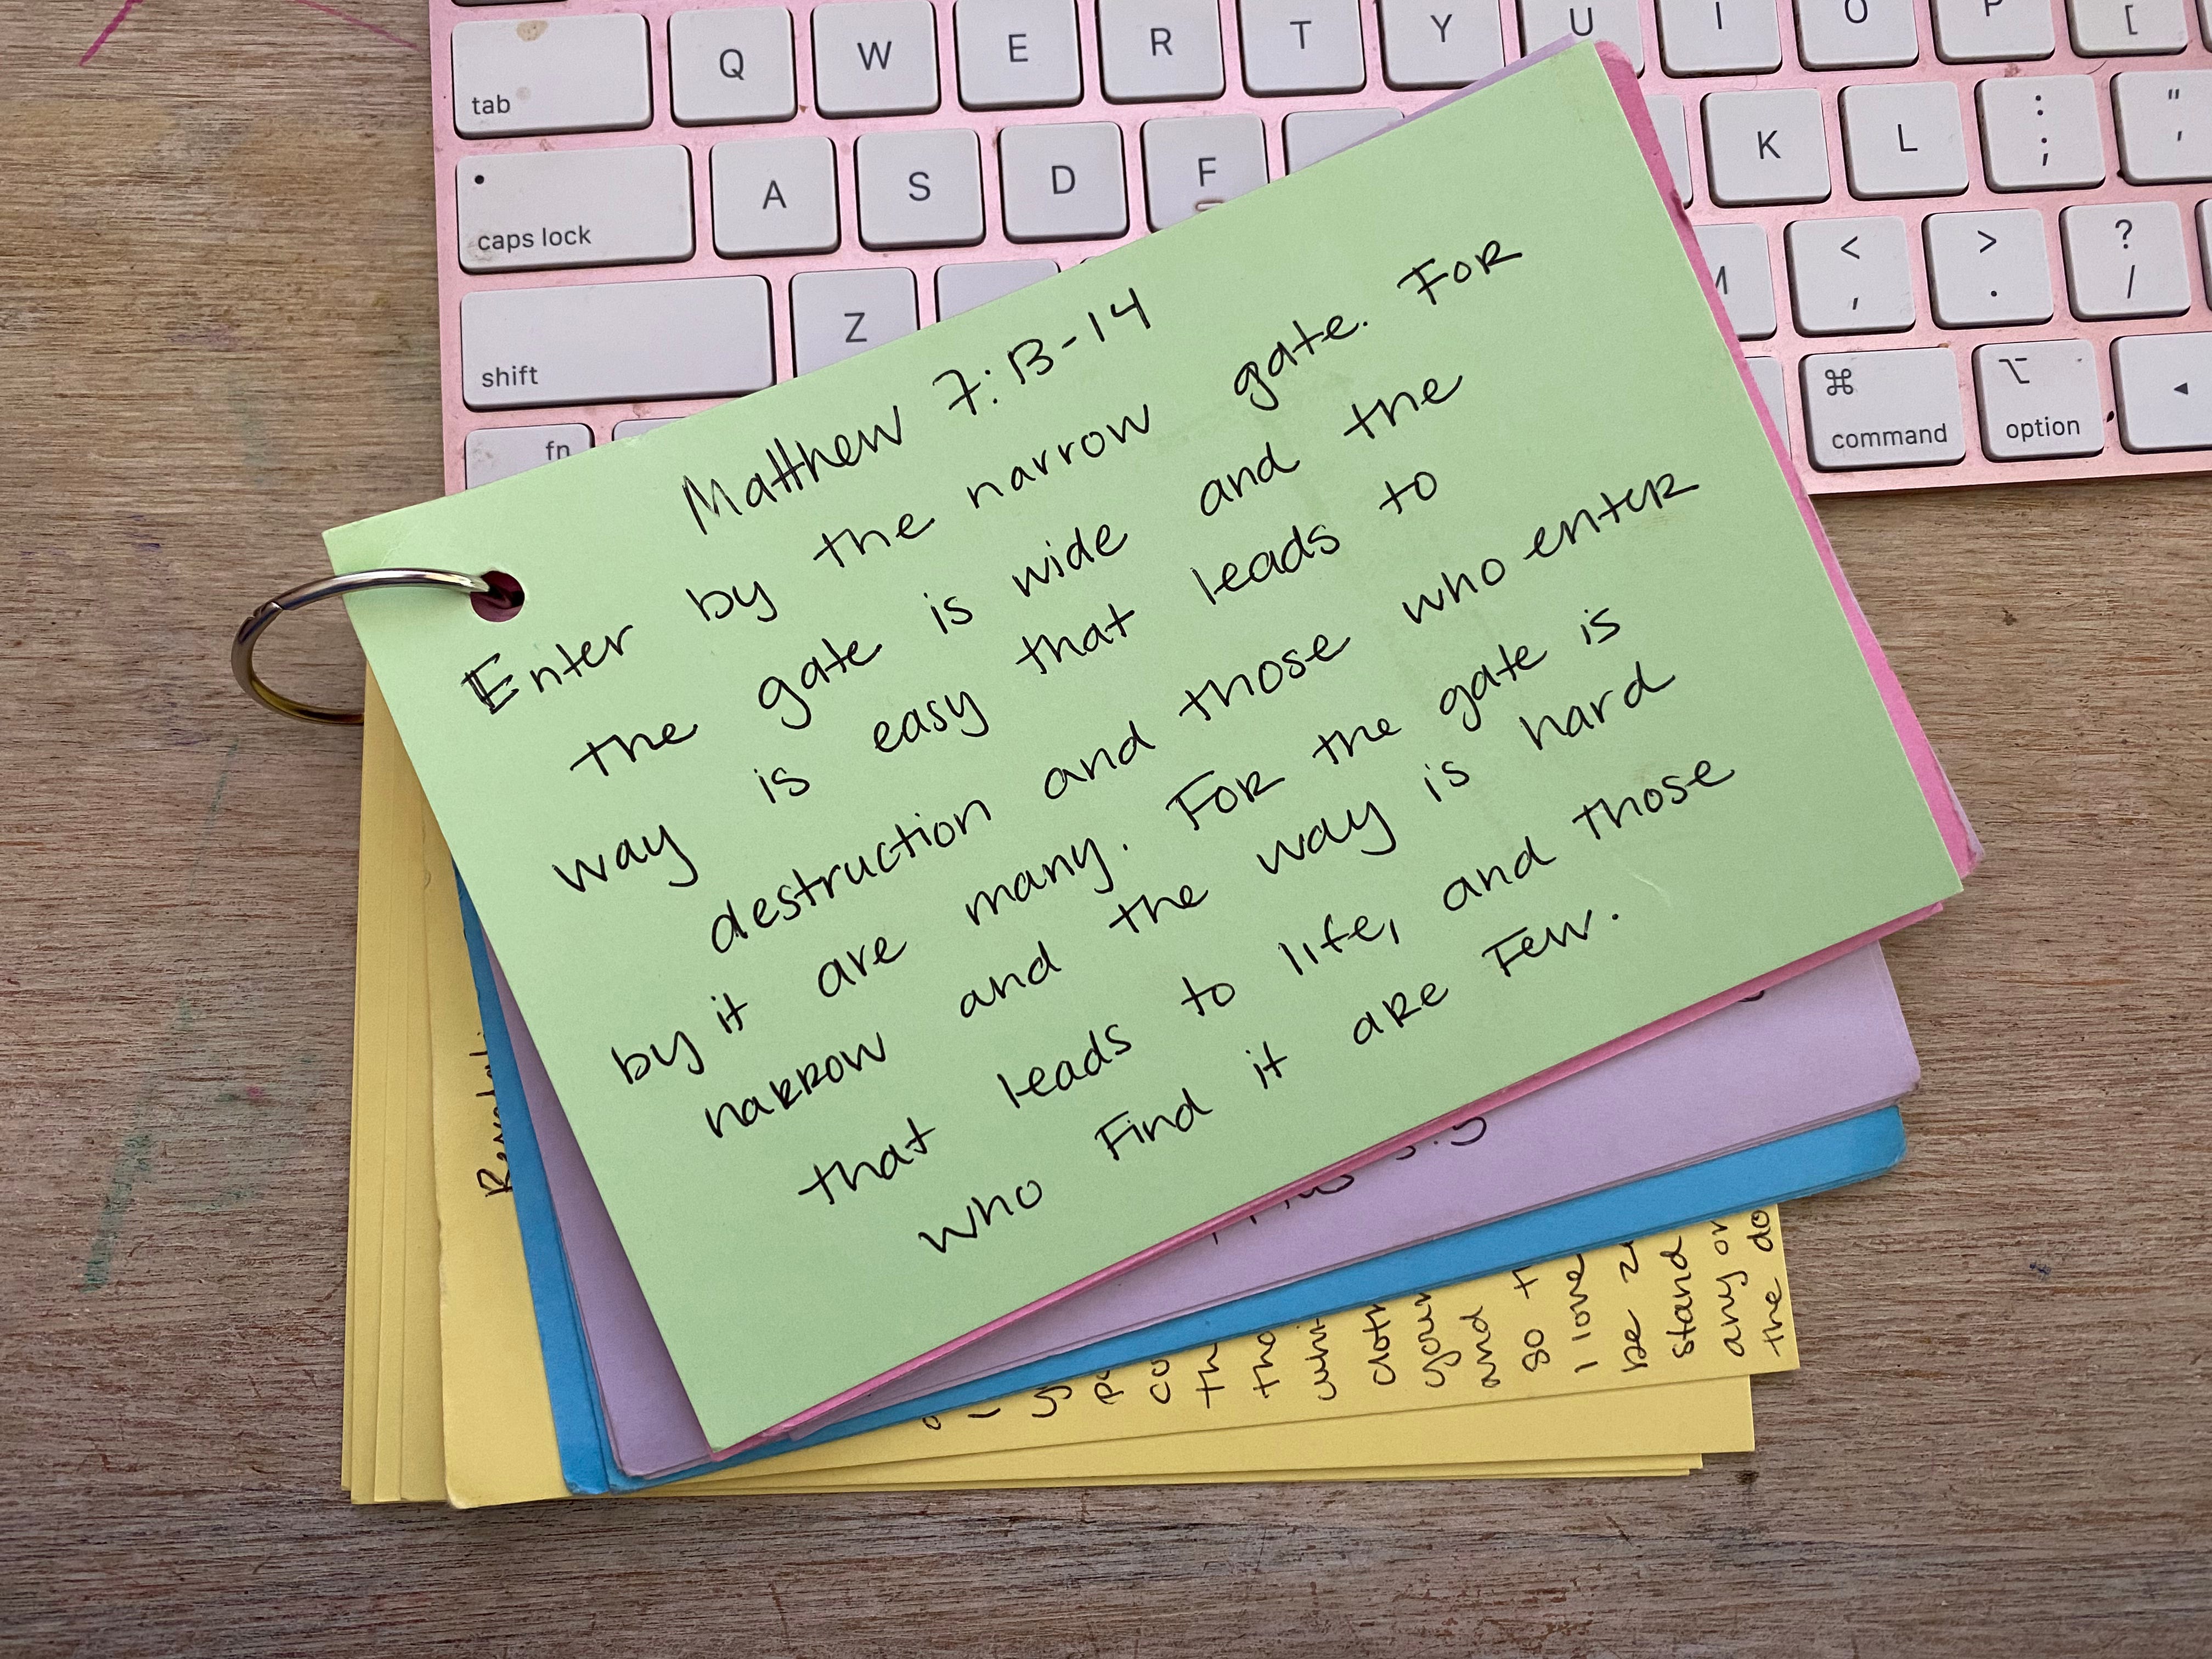 tab Q W E R T Y U I O P [
caps lock A S D F K L : ; " '
shift Z M < , > . ? /
fn ⌘ command ⌥ option ◂
Matthew 7:13-14
Enter by the narrow gate. For
the gate is wide and the
way is easy that leads to
destruction and those who enter
by it are many. For the gate is
narrow and the way is hard
that leads to life, and those
who Find it are Few.
and
so
I love
be
stand
any
the do